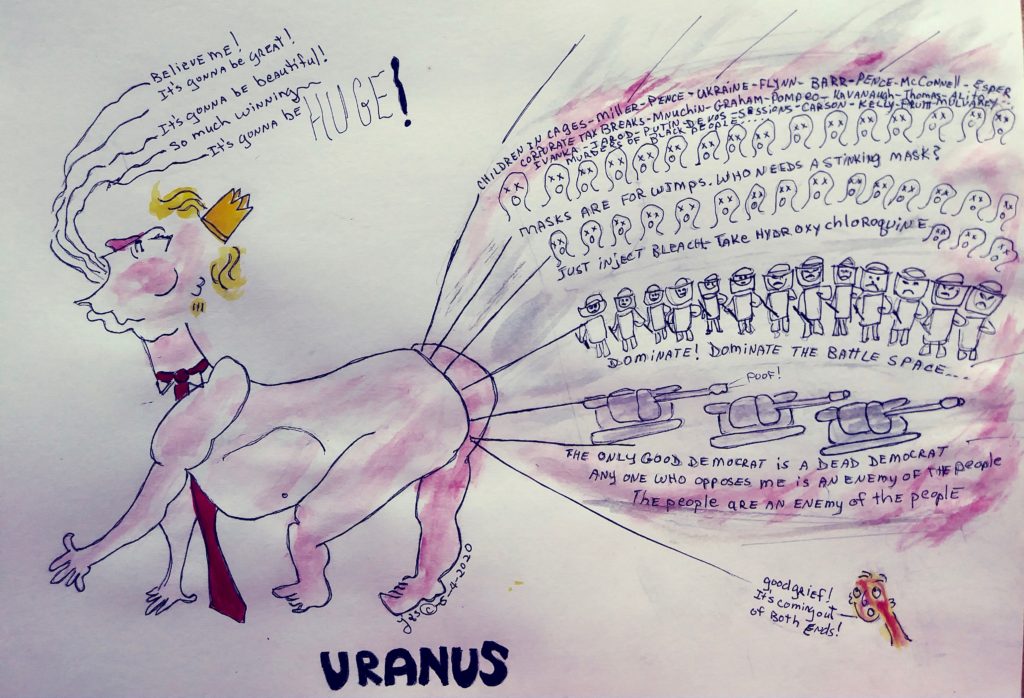 Believe me!
It's gonna be great!
It's gonna be beautiful!
So much winning
It's gonna be HUGE!
CHILDREN IN CAGES-MILLER-PENCE-UKRAINE-FLYNN-BARR-PENCE-McConnell-ESPER
CORPORATE TAX BREAKS-MNUCHIN-GRAHAM-POMPEO-KAVANAUGH-Thomas-ALITO-
IVANKA-JAROD-PUTIN-DEVOS-SESSIONS-CARSON-KELLY-PRUITT-MULVANEY...
MURDERS OF BLACK PEOPLE....
MASKS ARE FOR WIMPS. WHO NEEDS A STINKING MASK?
JUST INJECT BLEACH-TAKE HYDROXYchloroquine
DOMINATE! DOMINATE THE BATTLE SPACE...
POOF!
THE ONLY GOOD DEMOCRAT IS A DEAD DEMOCRAT
ANY ONE WHO OPPOSES ME IS AN ENEMY OF THE people
The people ARE AN ENEMY of the people
good grief!
It's coming out
of Both Ends!
©6-4-2020
URANUS